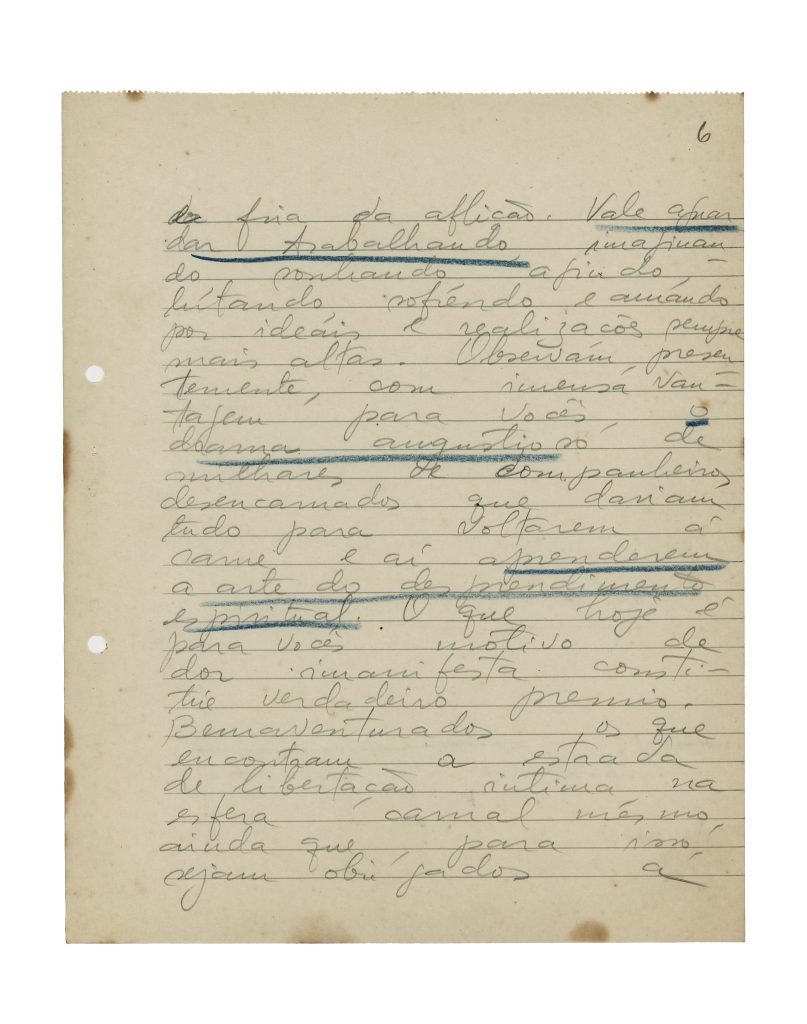 6
da fria da aflição. Vale aguar
dar trabalhando, imaginan
do sonhando agindo,
lutando sofrendo e amando
por ideáis e realizações sempre
mais altas. Observam, presen
temente, com imensa van-
tagem para vocês, o
drama angustioso de
milhares de companheiros
desencarnados que dariam
tudo para voltarem á
carne e aí aprenderem
a arte do desprendimento
espiritual. O que hoje é
para vocês motivo de
dor imanifesta consti-
túe verdadeiro premio.
Bemaventurados os que
encontram a estrada
de libertação intima na
esfera carnal mesmo,
ainda que, para isso,
sejam obrigados á